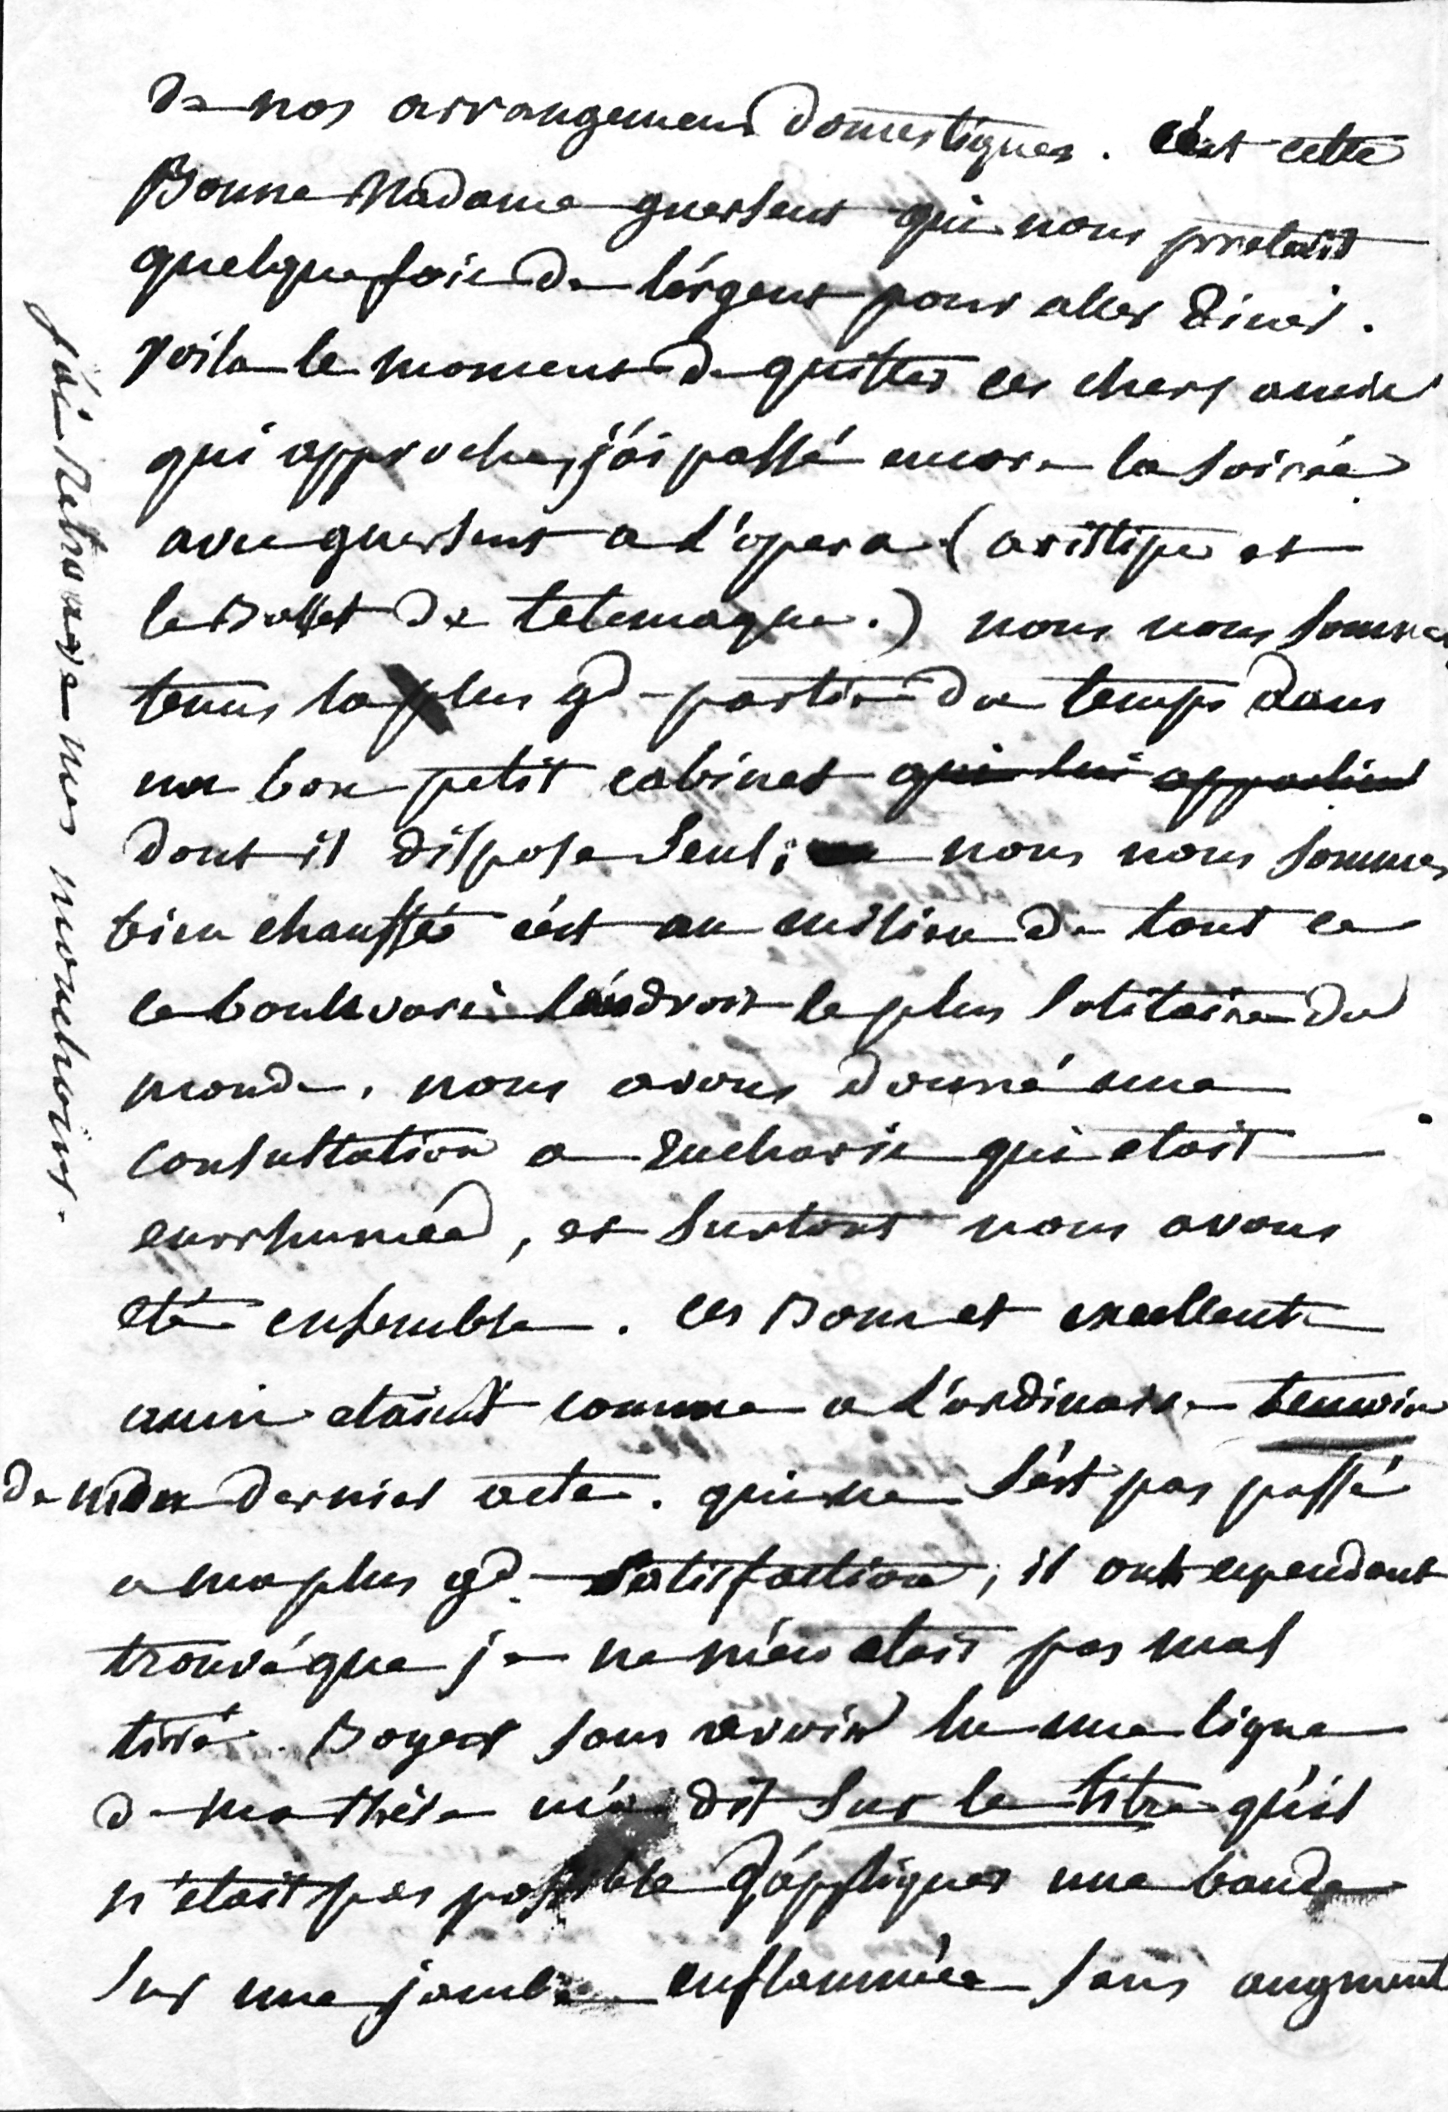 de nos arrangemens domestiques. c'est cette
Bonne Madame guersent qui nous pretait
quelquefois de l'argent pour aller diner.
voila le moment de quitter ces chers amis
qui approche, j'ai passé encore la soirée
avec guersent a l'opera (aristipe et
le Ballet de telemaque.) nous nous sommes
tenus la plus gde partie du temps dans
un bon petit cabinet qui lui appartient
dont il dispose seul; nous nous sommes
bien chauffés c'est au milieu de tout ce
le boulevari l'endroit le plus solitaire du
monde. nous avons donné une
consultation a Eucharis qui etait
enrhumée, et surtout nous avons
eté ensemble. ces Bons et excellents
amis etaient comme a l'ordinaire temoins
de mon dernier acte. qui ne s'est pas passé
a ma plus gde satisfaction, il ont cependant
trouvé que je ne m'en etais pas mal
tiré. Boyer sans avoir lu une ligne
de ma thèse m'a dit sur le titre qu'il
n'etait pas possible d'appliquer une bande
sur une jambe enflammée sans augment
j'ai retrouvé mes mouchoirs.